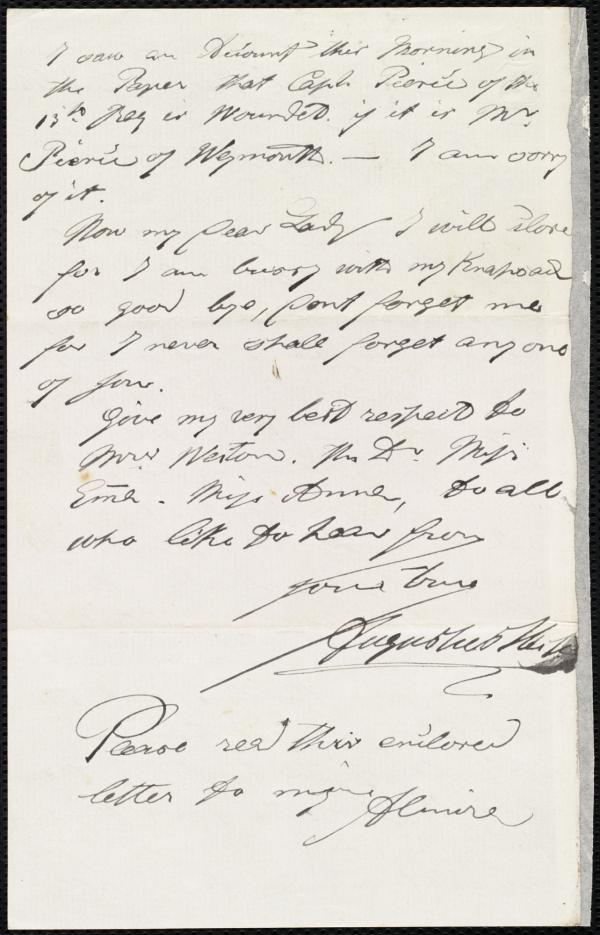 I saw an Account this Morning in
the Paper that Capt. Pierce of the
13th Reg is Wounded. if it is Mr.
Pierce of Weymouth. — I am sorry
of it.
Now my Dear Lady I will Close
for I am bussy with my Knapsack
so good bye, Dont forget me
for I never shall forget any one
of you.
Give my very best respect to
Mrs. Weston. the Dr. Miss
Ema. Miss Anna, to all
who like to hear from
yours true
Augustus
Please read this enclosed
letter to my Almira